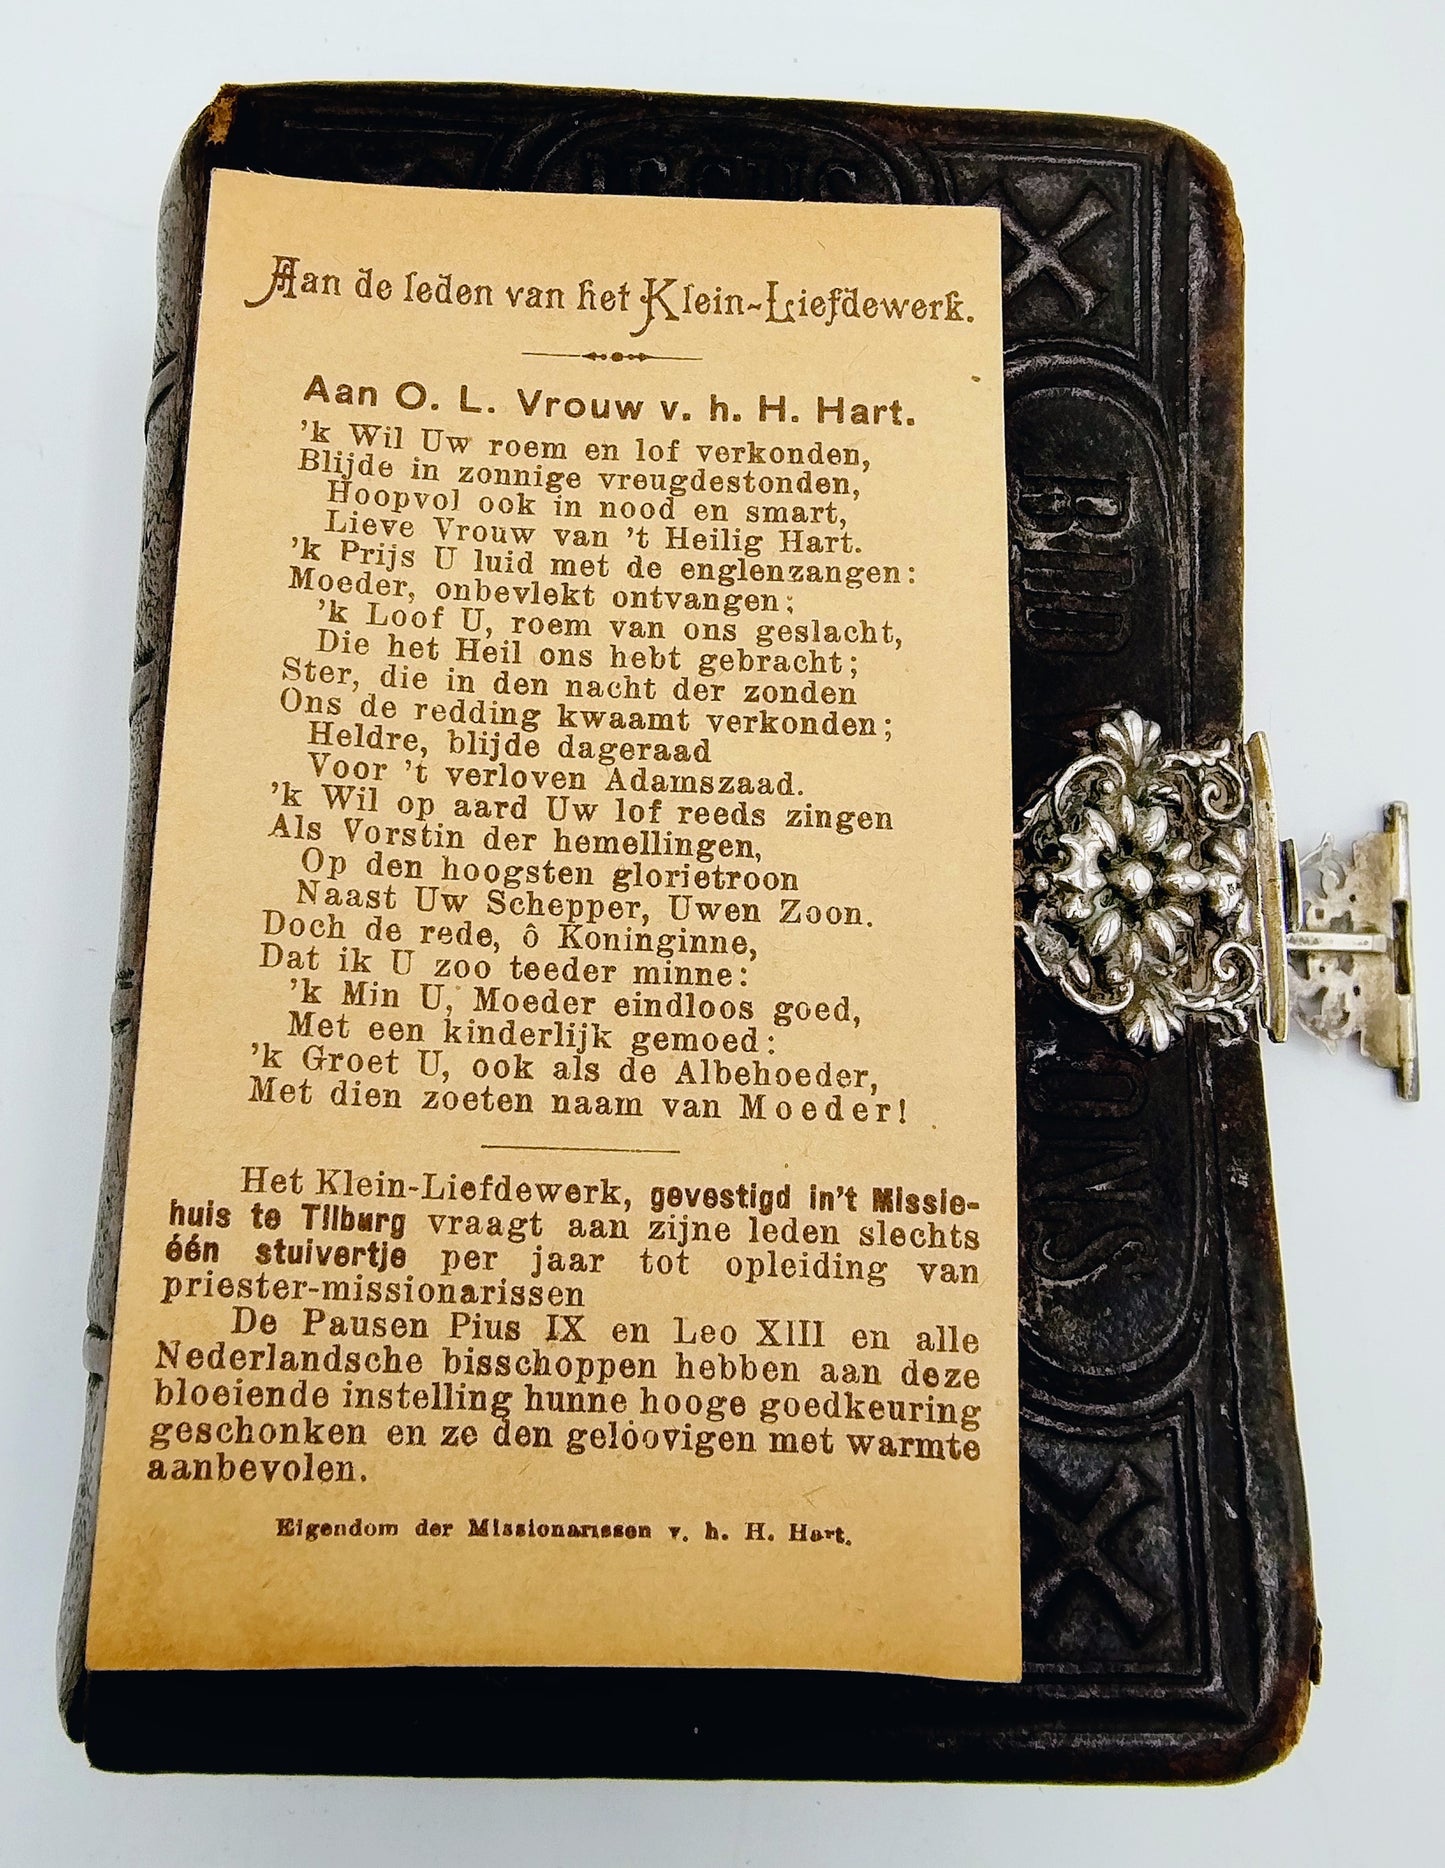 Aan de leden van het Klein-Liefdewerk.
Aan O. L. Vrouw v. h. H. Hart.
'k Wil Uw roem en lof verkonden,
Blijde in zonnige vreugdestonden,
Hoopvol ook in nood en smart,
Lieve Vrouw van 't Heilig Hart.
'k Prijs U luid met de englenzangen:
Moeder, onbevlekt ontvangen;
'k Loof U, roem van ons geslacht,
Die het Heil ons hebt gebracht;
Ster, die in den nacht der zonden
Ons de redding kwaamt verkonden;
Heldre, blijde dageraad
Voor 't verloven Adamszaad.
'k Wil op aard Uw lof reeds zingen
Als Vorstin der hemellingen,
Op den hoogsten glorietroon
Naast Uw Schepper, Uwen Zoon.
Doch de rede, ô Koninginne,
Dat ik U zoo teeder minne:
'k Min U, Moeder eindloos goed,
Met een kinderlijk gemoed:
'k Groet U, ook als de Albehoeder,
Met dien zoeten naam van Moeder!
Het Klein-Liefdewerk, gevestigd in't Missie-
huis te Tilburg vraagt aan zijne leden slechts
één stuivertje per jaar tot opleiding van
priester-missionarissen
De Pausen Pius IX en Leo XIII en alle
Nederlandsche bisschoppen hebben aan deze
bloeiende instelling hunne hooge goedkeuring
geschonken en ze den geloovigen met warmte
aanbevolen.
Eigendom der Missionarissen v. h. H. Hart.
JESUS
BID
ONS